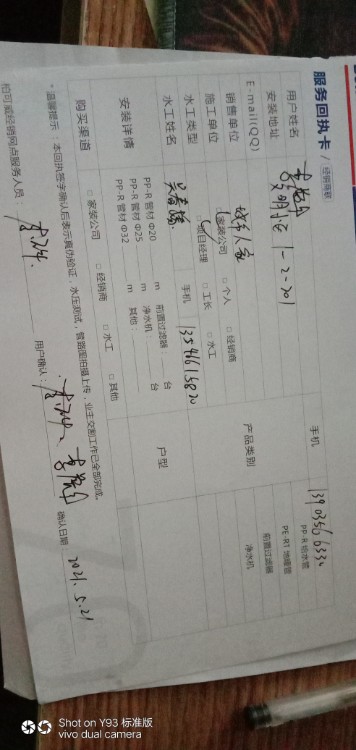 服务回执卡 / 经销商联
用户姓名 手机 13903566334
安装地址 文明小区 1-2-201 PP-R 给水管
E-mail(QQ) PE-RT 地暖管
销售单位 城市人家 产品类别 前置过滤器
施工单位 □家装公司 □个人 □经销商 净水机
水工类型 □项目经理 □工长 □水工
水工姓名 吴春 手机 13546615820
安装详情 PP-R 管材 Φ20 m 前置过滤器 台 户型
PP-R 管材 Φ25 m 净水机 台
PP-R 管材 Φ32 m 其他:
购买渠道 □家装公司 □经销商 □水工 □其他
*温馨提示:本回执签字确认后表示真伪验证,水压测试,管路图拍摄上传,业主交割工作已全部完成。
柏可威经销网点服务人员: 用户确认: 确认日期 2021.5.21
Shot on Y93 标准版
vivo dual camera